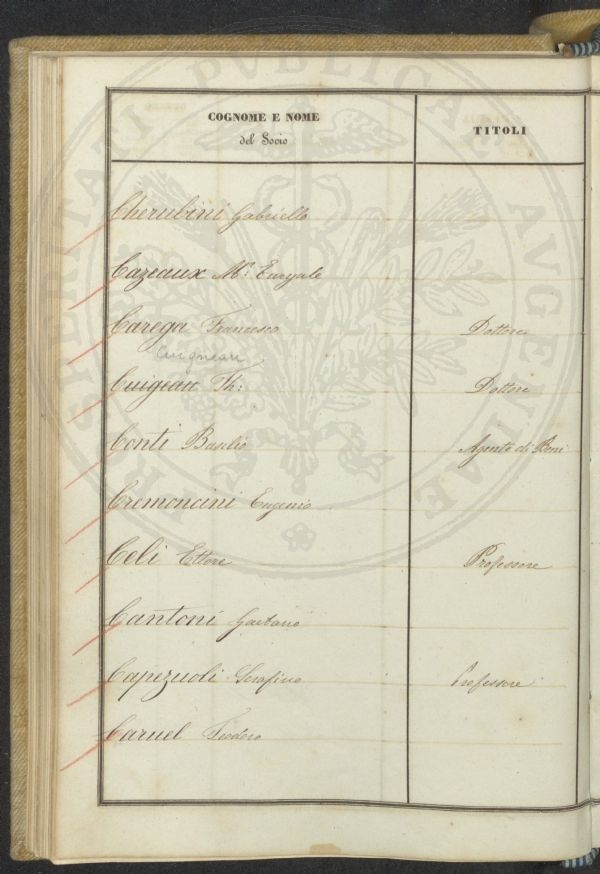 COGNOME E NOME
del Socio
TITOLI
Cherubini Gabriello
Cazeaux Mr. Euryale
Carega Francesco Dottore
Cuigneau
Cuigeau Th: Dottore
Conti Basilio Agente di Beni
Cremoncini Eugenio
Celi Ettore Professore
Cantoni Gaetano
Capezuoli Serafino Professore
Caruel Teodoro
PROSPERITATI PVBLICAE AVGENDAE